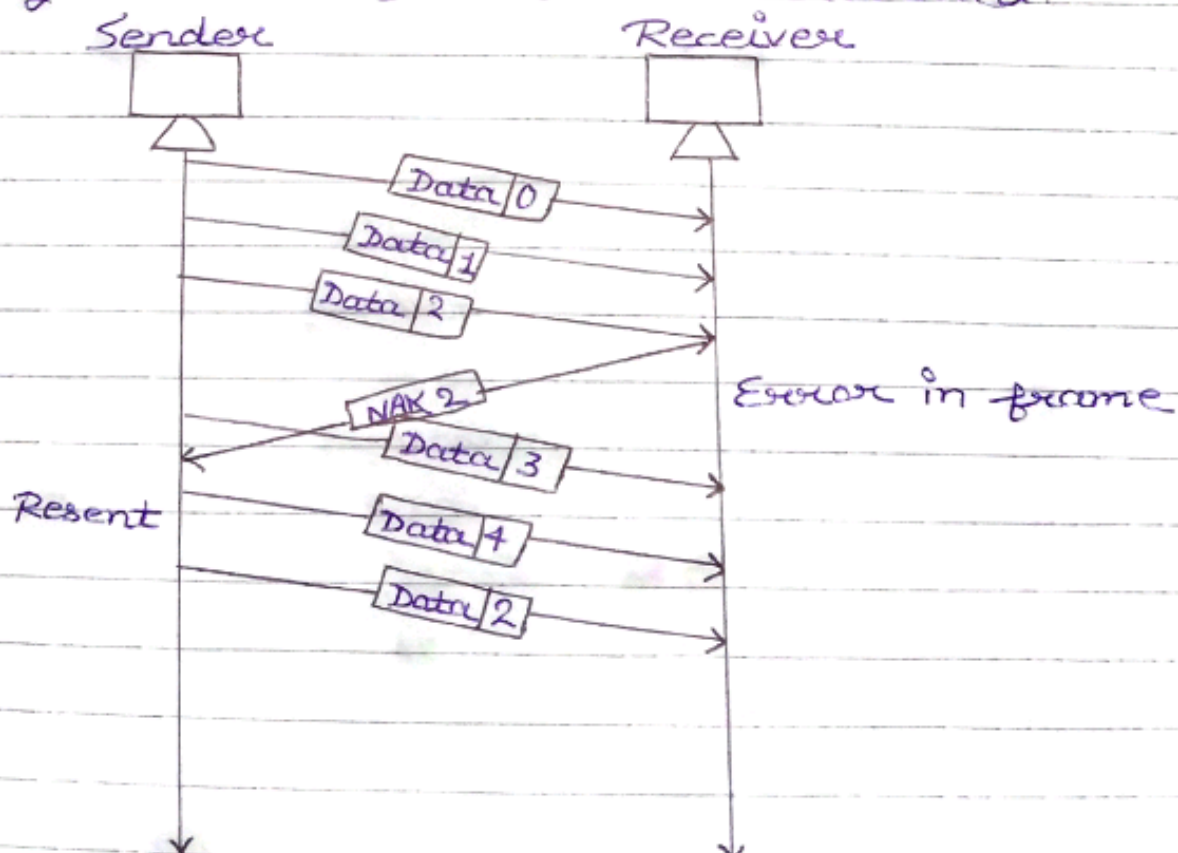 Sender Receiver
Data 0
Data 1
Data 2
NAK 2
Error in frame
Data 3
Resent
Data 4
Data 2